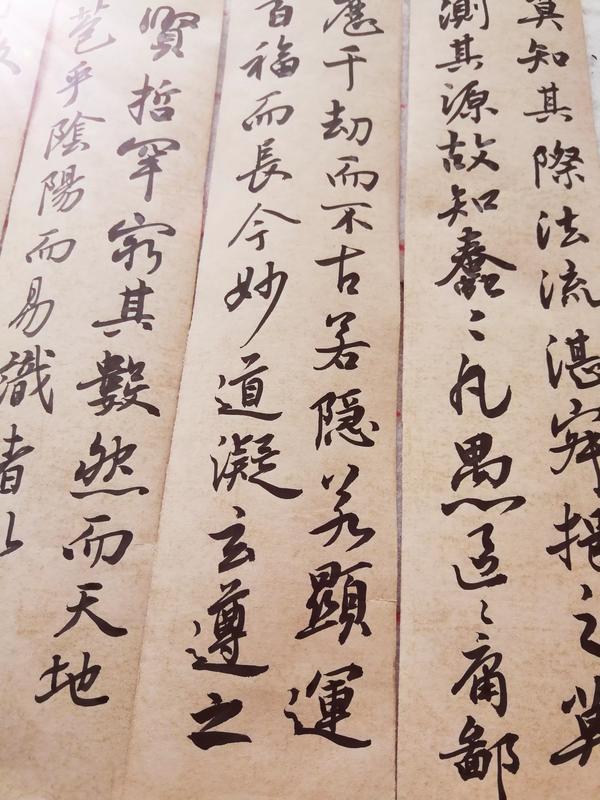 莫知其際法流湛寂挹之莫
測其源故知蠢〻凡愚區〻庸鄙
歷千劫而不古若隱若顯運
百福而長今妙道凝玄遵之
賢哲罕窮其數然而天地
苞乎陰陽而易識者以